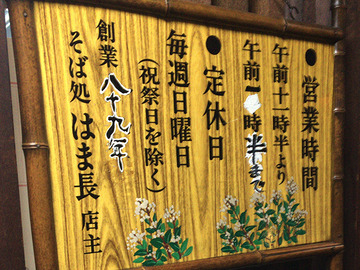 ●営業時間
午前十一時半より
午前 時半まで
●定休日
毎週日曜日
(祝祭日を除く)
創業八十九年
そば処 はま長 店主